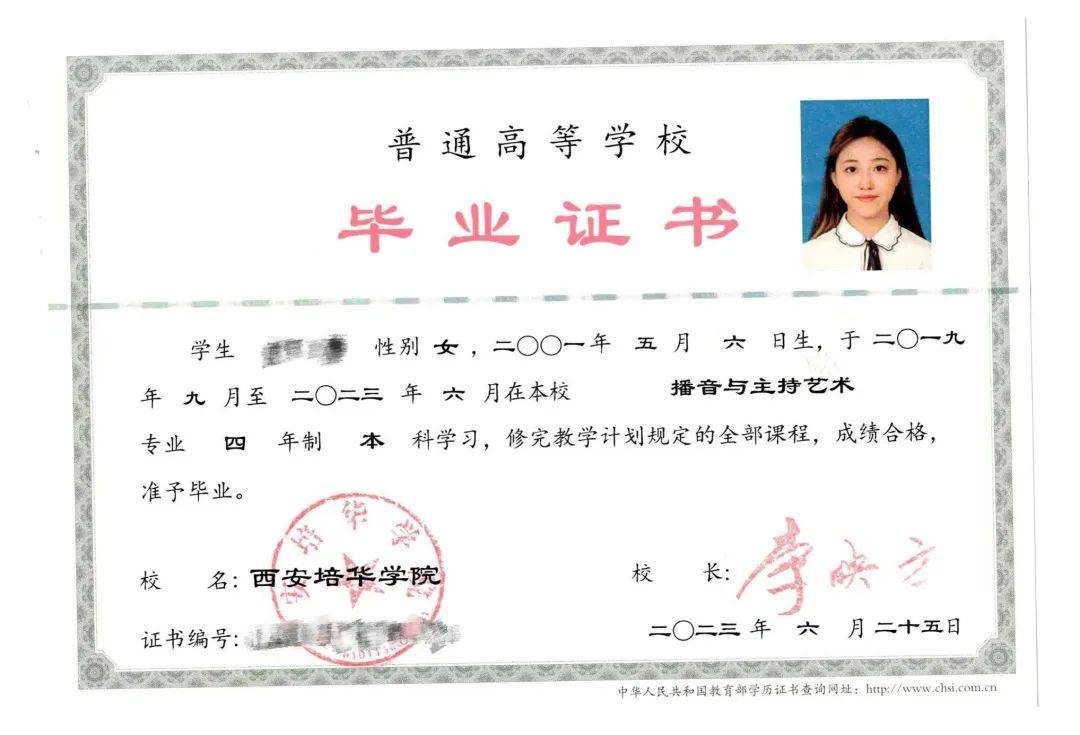 普通高等学校
毕业证书
学生 性别 女，二〇〇一年 五 月 六 日生，于 二〇一九
年 九 月至 二〇二三 年 六 月在本校 播音与主持艺术
专业 四 年制 本 科学习，修完教学计划规定的全部课程，成绩合格，
准予毕业。
校 名：西安培华学院
校 长：李映方
证书编号：
二〇二三 年 六 月 二十五日
中华人民共和国教育部学历证书查询网址：http://www.chsi.com.cn